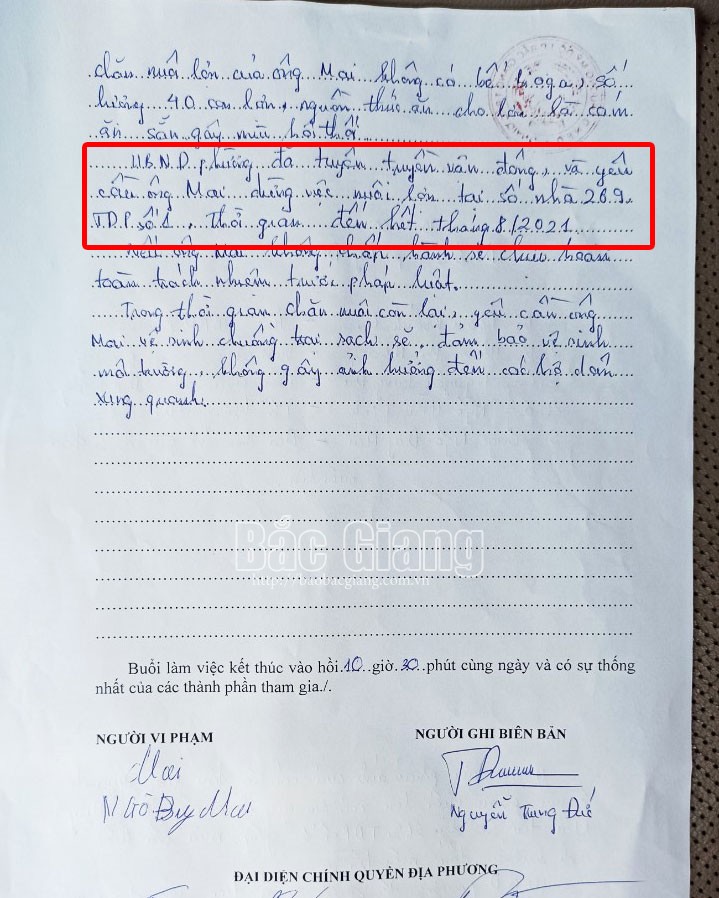 chăn nuôi lợn của ông Mai không có bể bioga, số
lượng 40 con lợn, nguồn thức ăn cho lợn là cám
ăn sẵn gây mùi hôi thối.
UBND phường đã tuyên truyền vận động, và yêu
cầu ông Mai dừng việc nuôi lợn tại số nhà 269
TDP số 1, thời gian đến hết tháng 8/2021
Nếu ông Mai không chấp hành sẽ chịu hoàn
toàn trách nhiệm trước pháp luật.
Trong thời gian chăn nuôi còn lại, yêu cầu ông
Mai vệ sinh chuồng trại sạch sẽ, đảm bảo vệ sinh
môi trường, không gây ảnh hưởng đến các hộ dân
xung quanh.
Bắc Giang
http://baobacgiang.com.vn
Buổi làm việc kết thúc vào hồi 10 giờ 30 phút cùng ngày và có sự thống
nhất của các thành phần tham gia./.
NGƯỜI VI PHẠM
NGƯỜI GHI BIÊN BẢN
Mai
Ngô Duy Mai
Nguyễn Trung
ĐẠI DIỆN CHÍNH QUYỀN ĐỊA PHƯƠNG